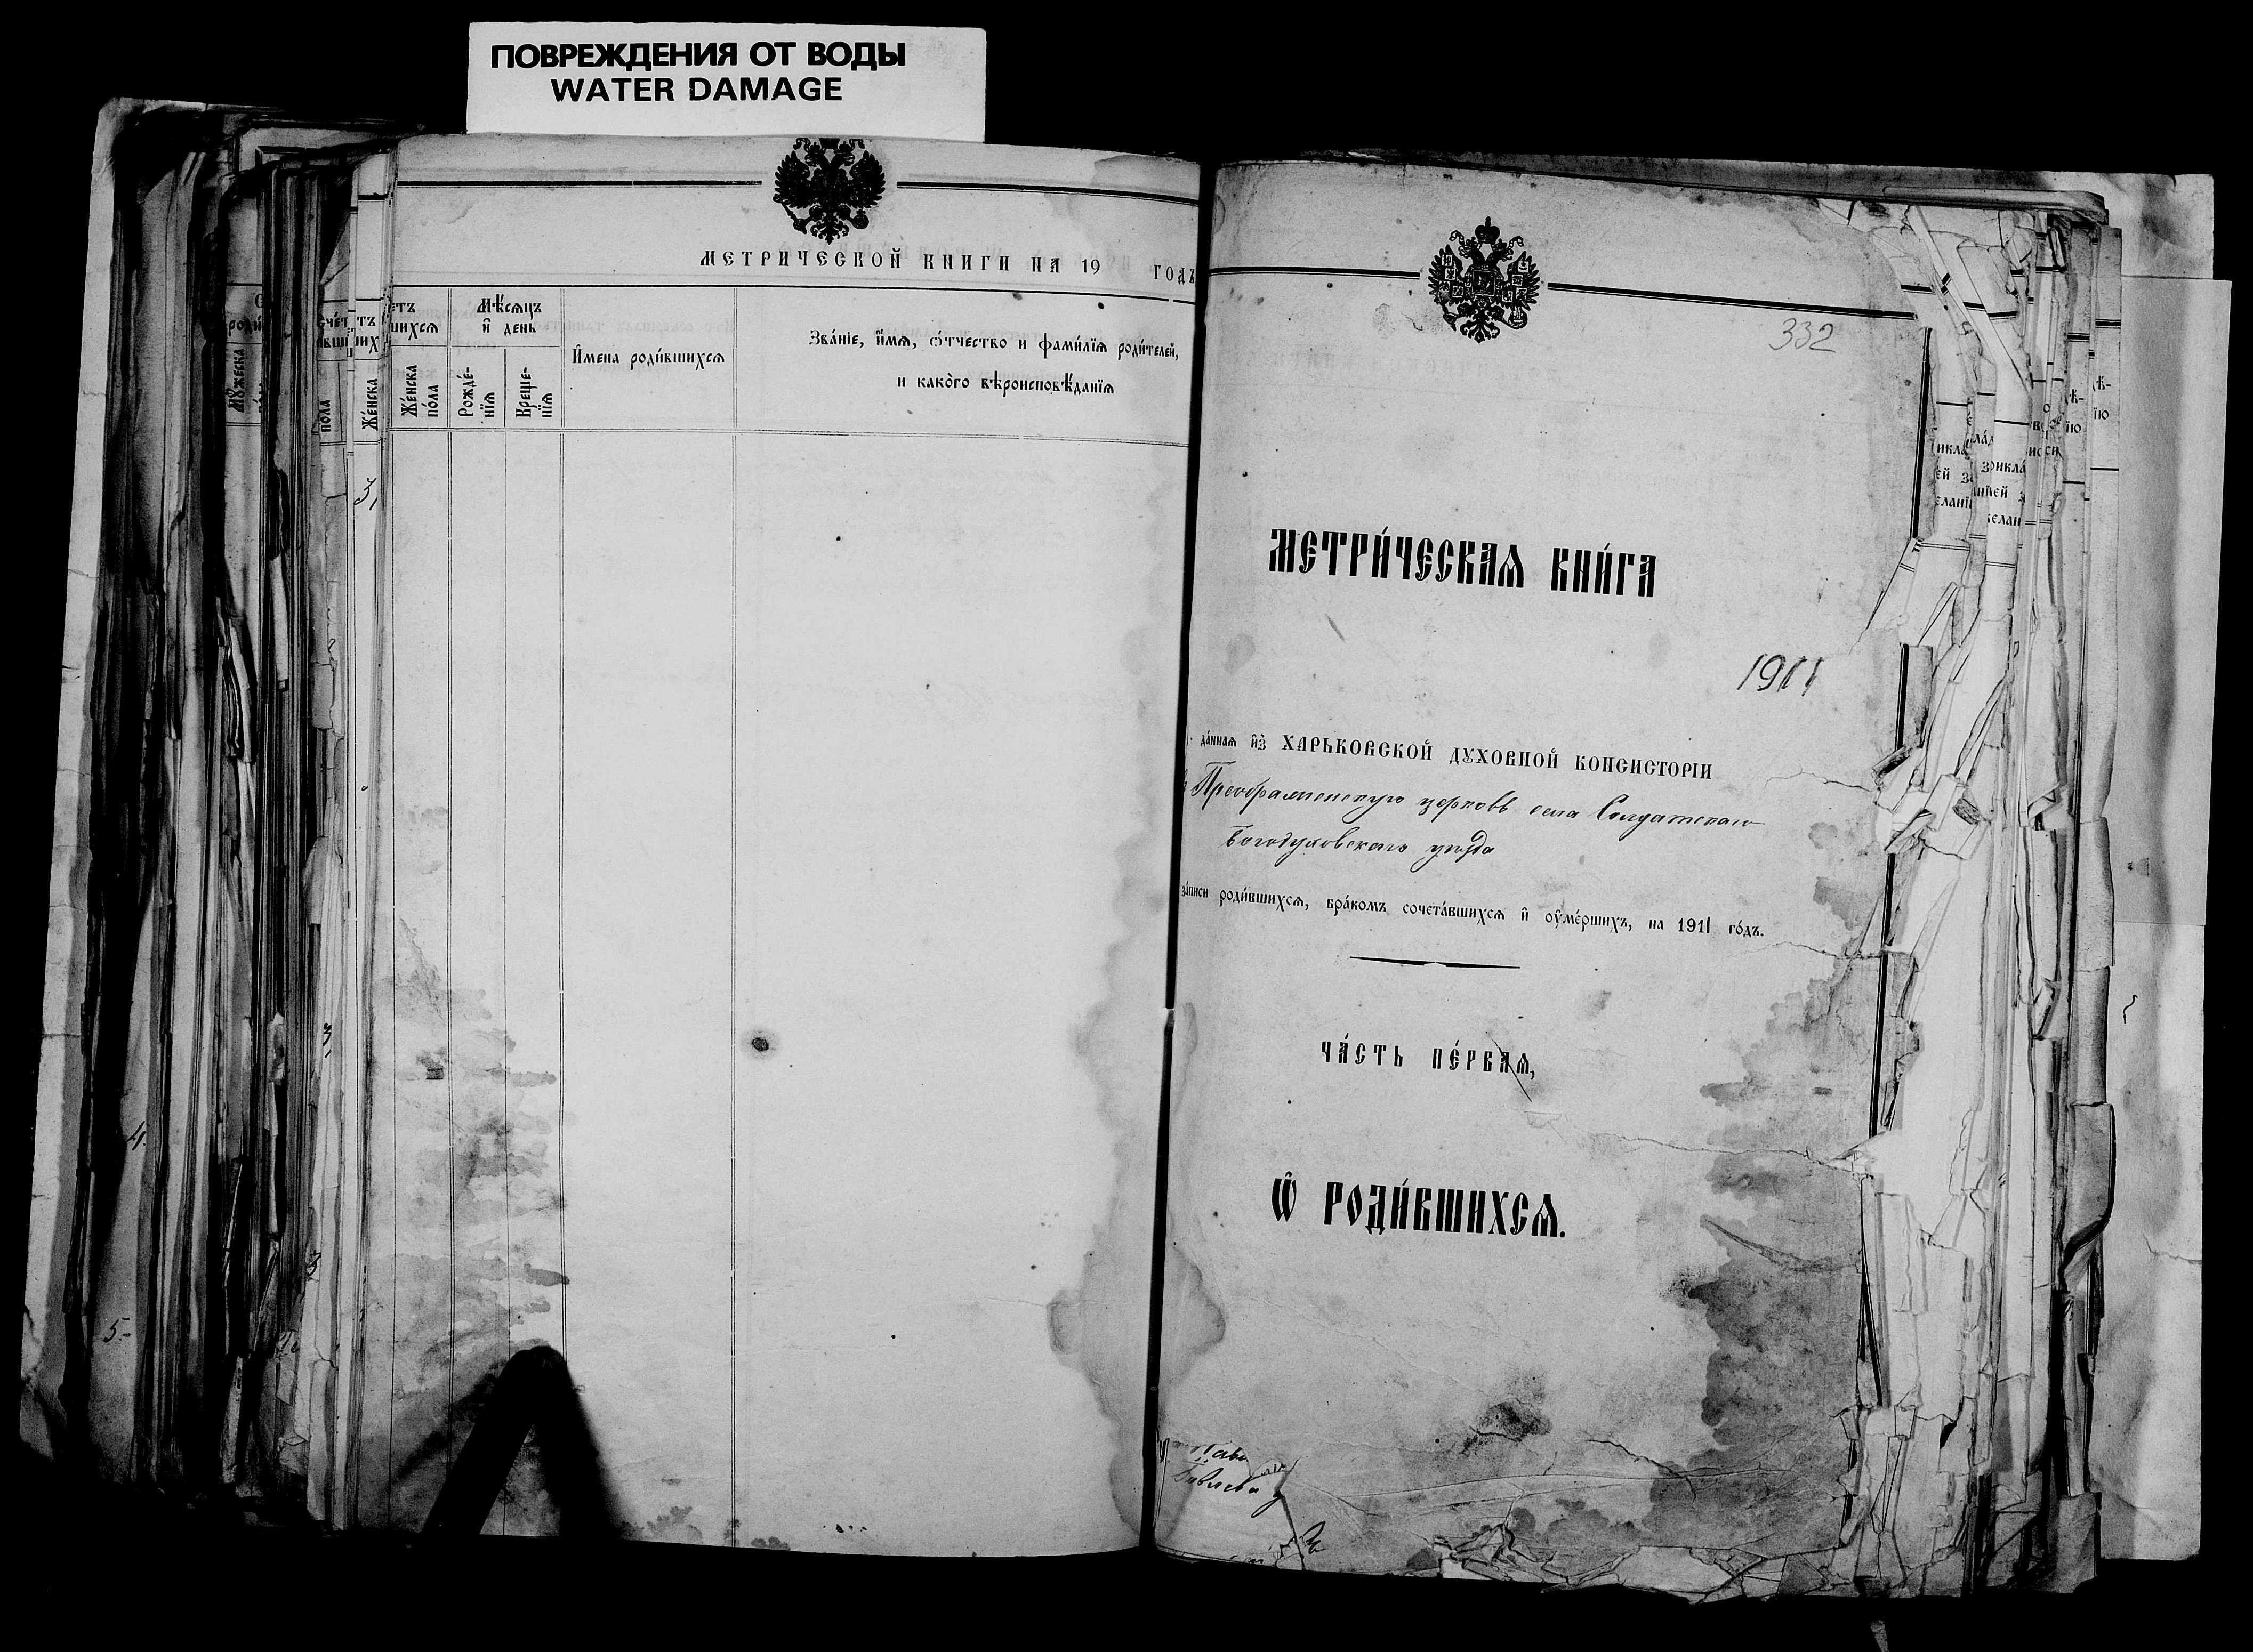 ПОВРЕЖДЕНИЯ ОТ ВОДЫ
WATER DAMAGE
МЕТРИЧЕСКОЙ КНИГИ НА 19 ГОДЪ
Мѣсяцъ и день
Имена родившихся
Званіе, имя, отчество и фамилія родителей,
и какого вѣроисповѣданія
Женска пола
Рожденія
Крещенія
332
МЕТРИ́ЧЕСКАЯ КНИ́ГА
1911
да́нная из̾ ХАРЬКОВСКОЙ ДУХОВНОЙ КОНСИСТОРІИ
Преображенскую церковь села Солдатскаго
Богодуховскаго уѣзда
за́писи роди́вшихся, бра́комъ сочета́вшихся и оуме́ршихъ, на 1911 го́дъ.
ЧА́СТЬ ПЕ́РВАЯ,
Ѡ РОДИ́ВШИХСЯ.